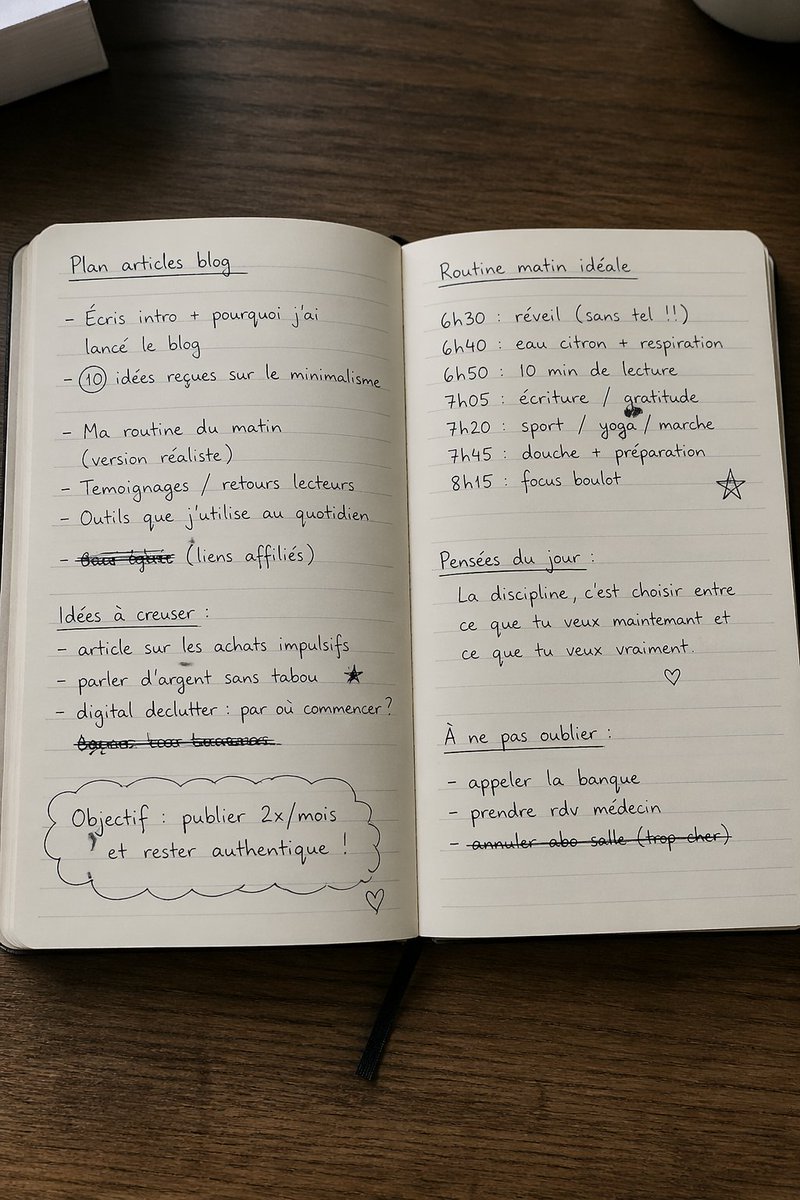 Plan articles blog
- Écris intro + pourquoi j'ai
lancé le blog
- 10 idées reçues sur le minimalisme
- Ma routine du matin
(version réaliste)
- Temoignages / retours lecteurs
- Outils que j'utilise au quotidien
- (liens affiliés)
Idées à creuser :
- article sur les achats impulsifs
- parler d'argent sans tabou ★
- digital declutter : par où commencer ?
Objectif : publier 2x/mois
et rester authentique !
♡
Routine matin idéale
6h30 : réveil (sans tel !!)
6h40 : eau citron + respiration
6h50 : 10 min de lecture
7h05 : écriture / gratitude
7h20 : sport / yoga / marche
7h45 : douche + préparation
8h15 : focus boulot ☆
Pensées du jour :
La discipline, c'est choisir entre
ce que tu veux maintemant et
ce que tu veux vraiment.
♡
À ne pas oublier :
- appeler la banque
- prendre rdv médecin
- annuler abo salle (trop cher)